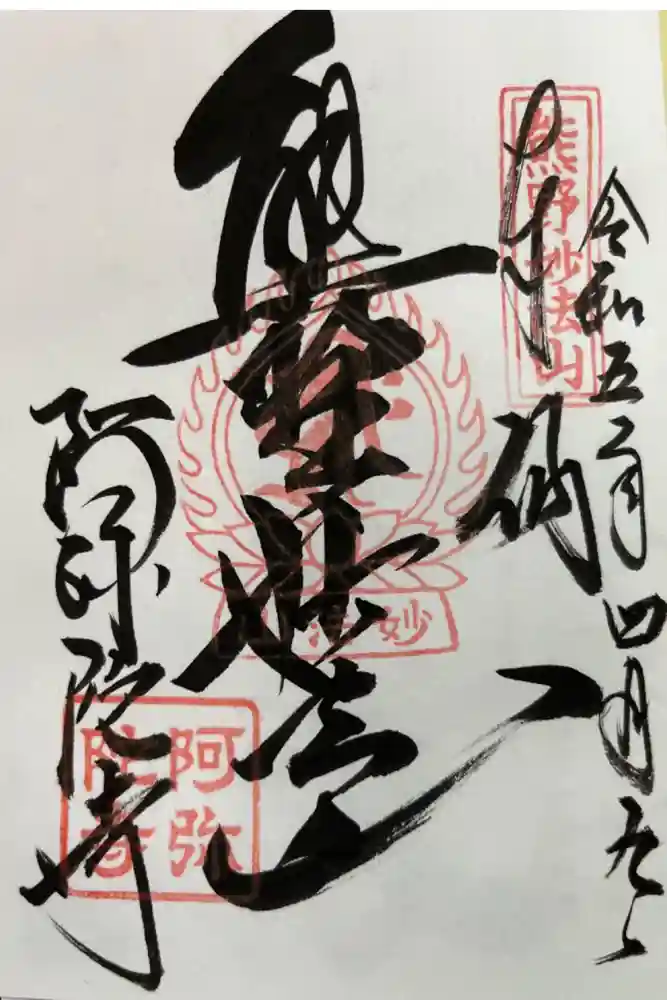 令和五年四月
熊野妙法山
奉
熊野妙法山
妙法山
阿弥陀寺
阿弥陀寺